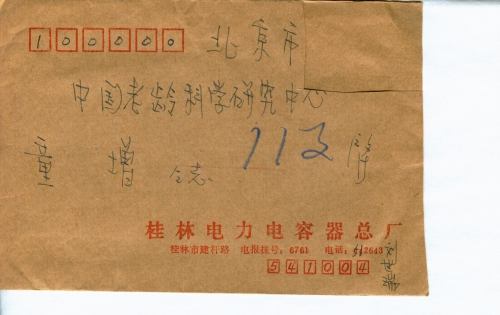 100000 北京市
中国老龄科学研究中心
童增 同志 启
113
桂林电力电容器总厂
桂林市建杆路 电报挂号:6761 电话:512643
541004